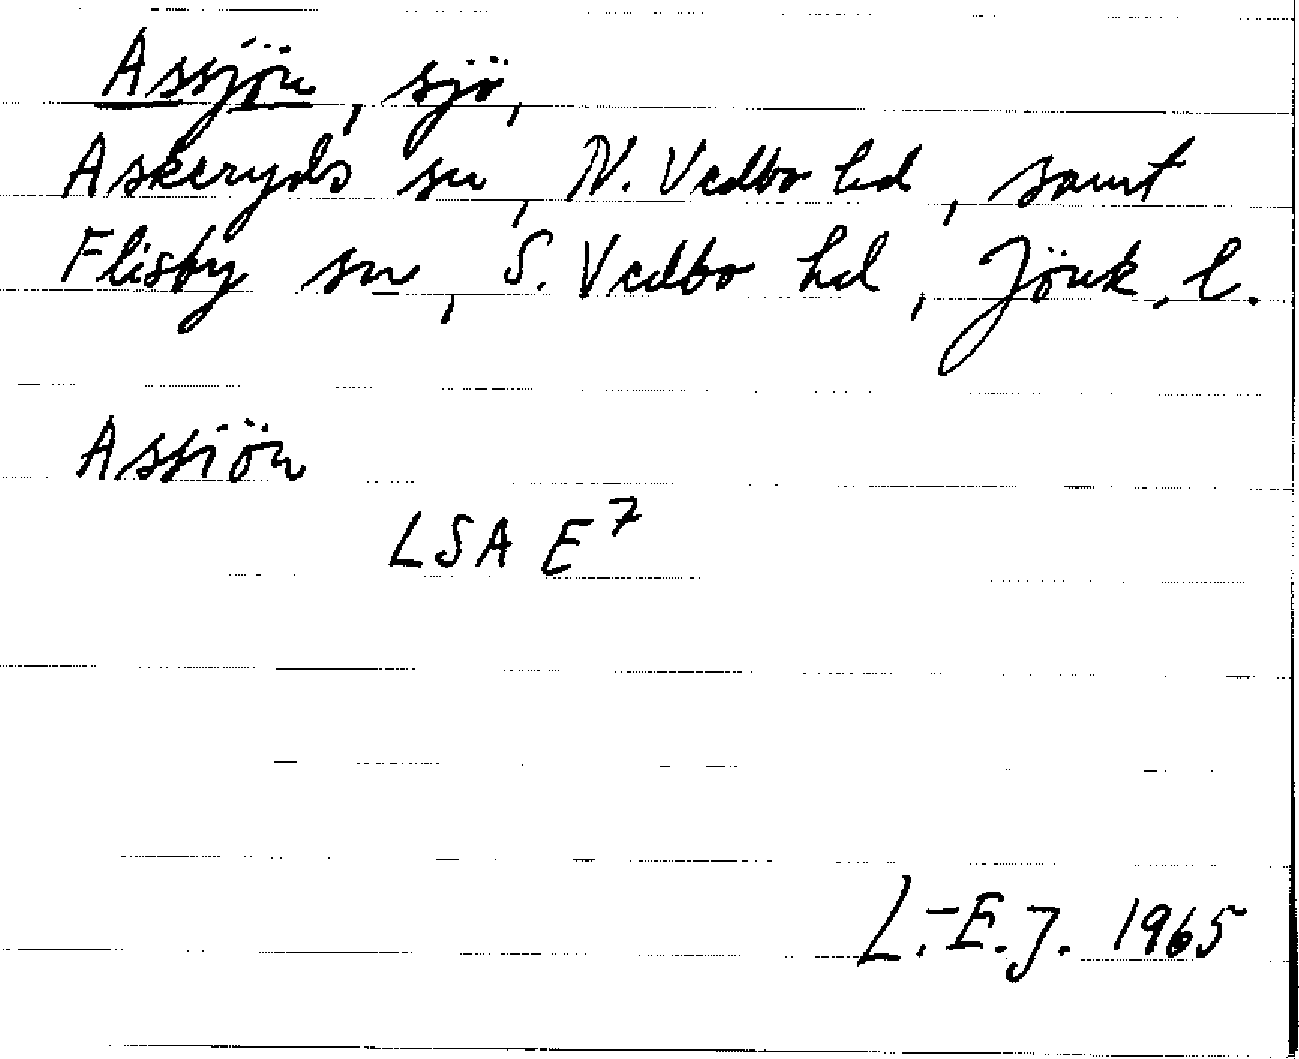 Assjön, sjö,
Askeryds sn, N. Vedbo hd, samt
Flisby sn, S. Vedbo hd, Jönk. l.
Assiön
LSA E7
L.-E.J. 1965